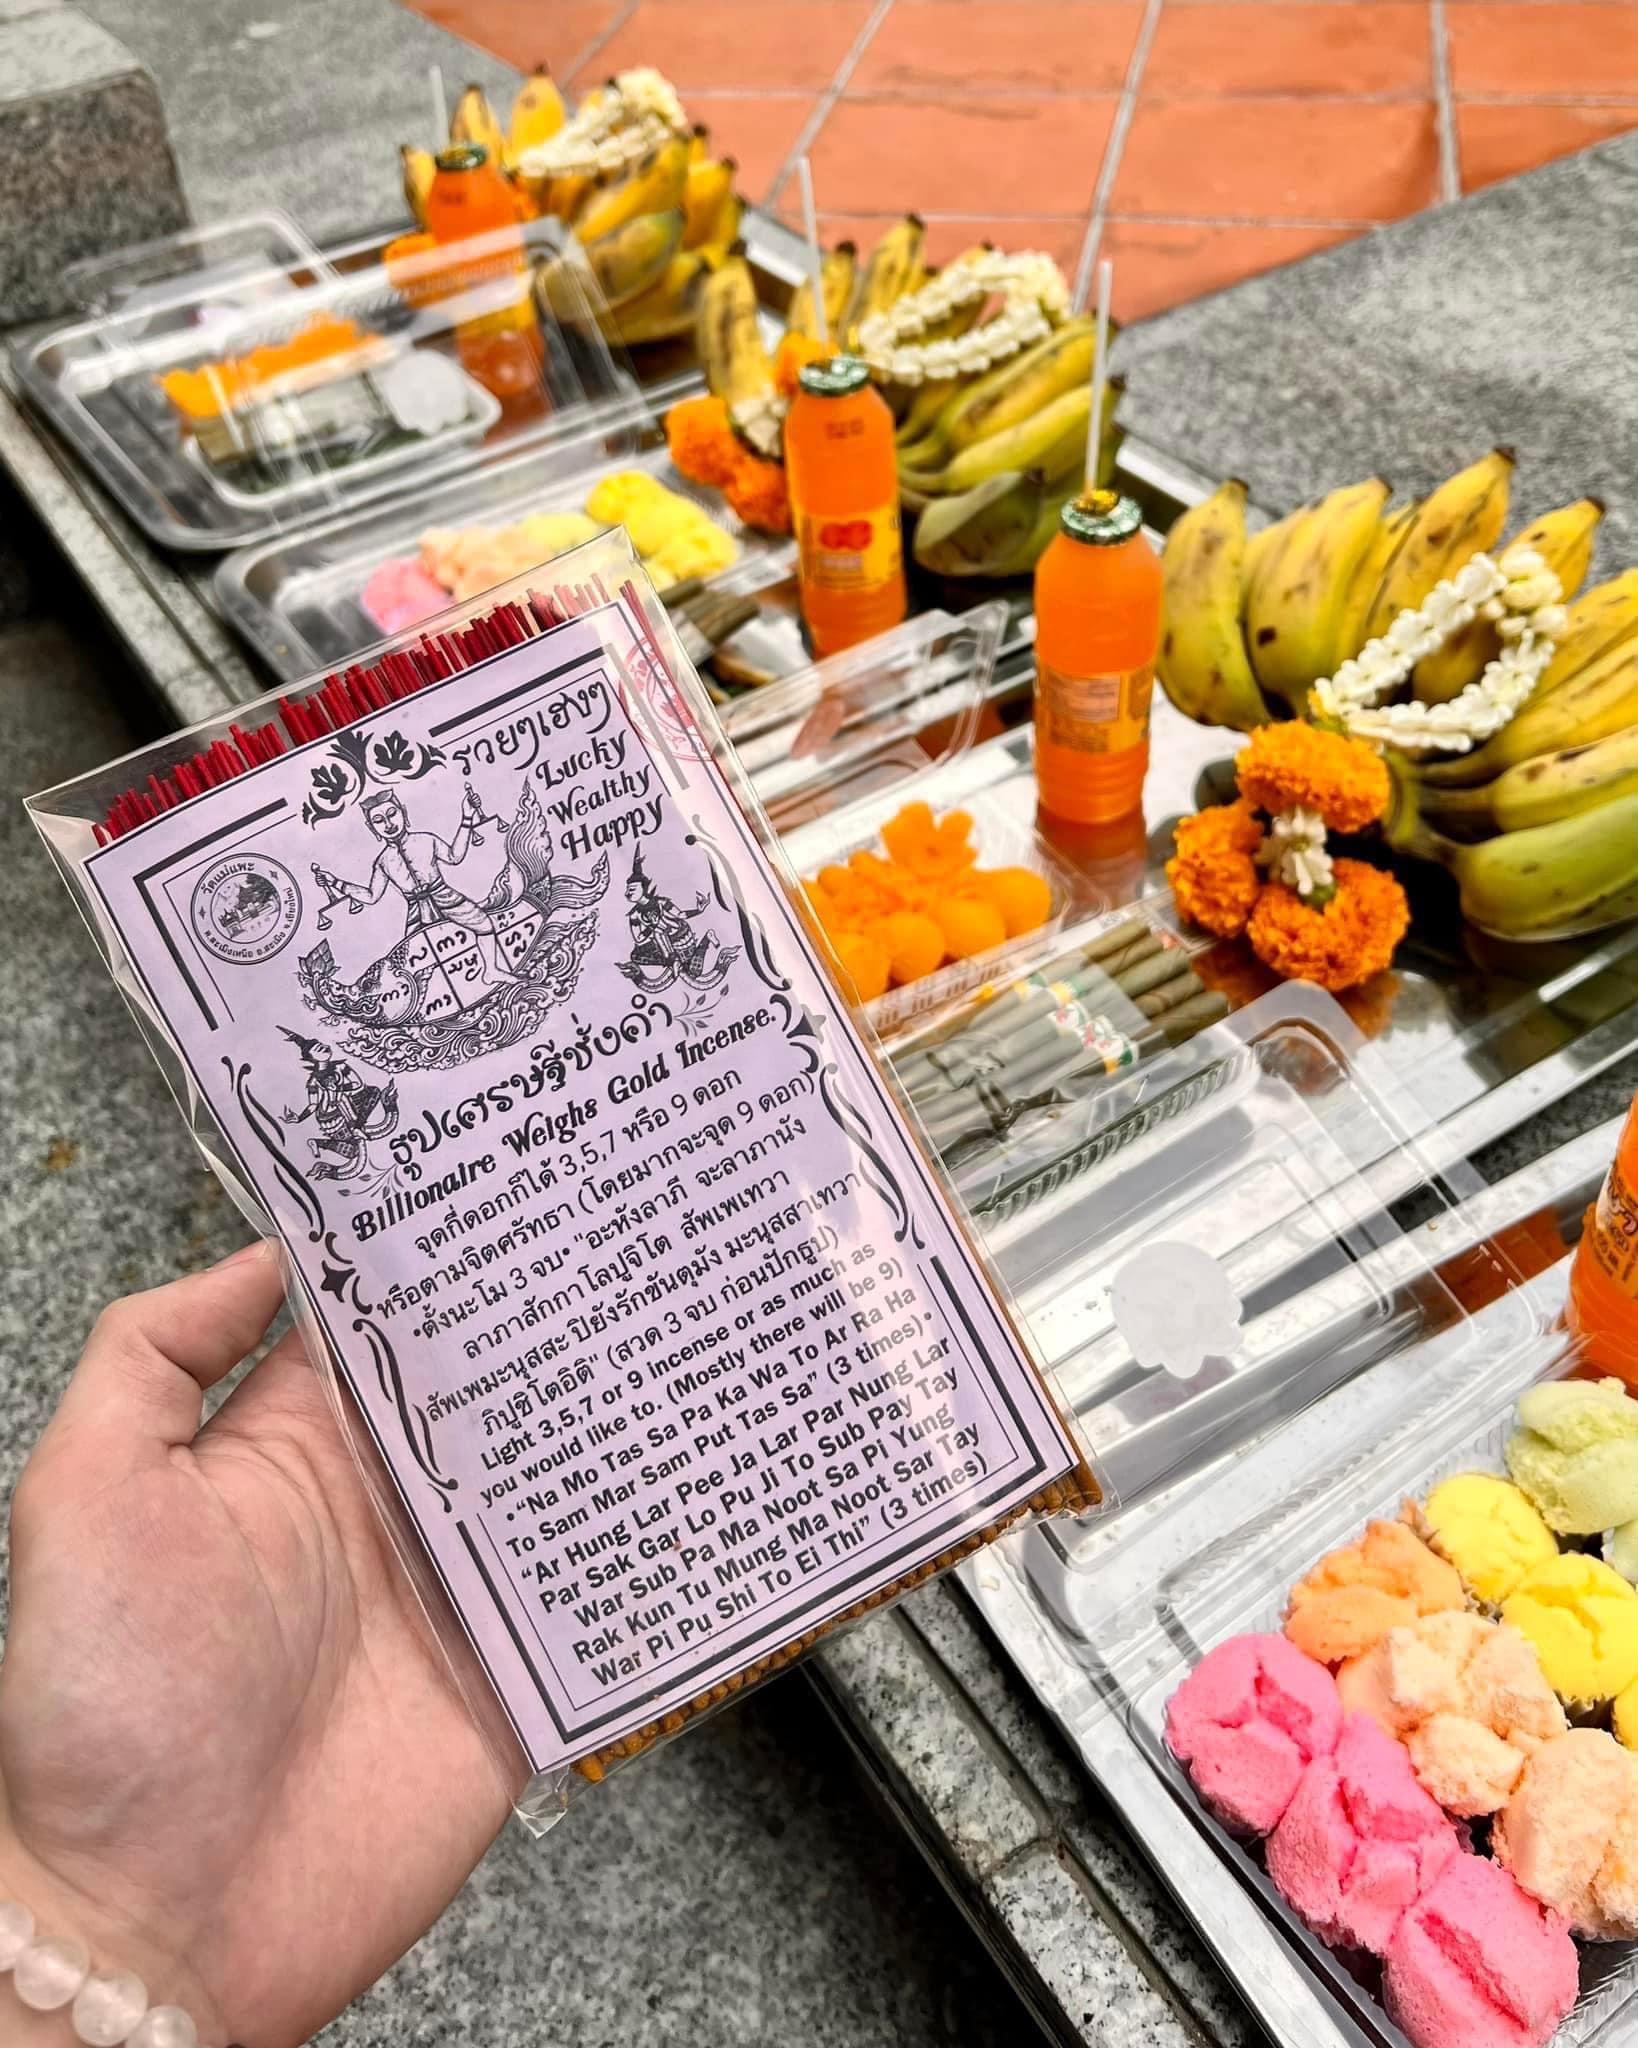 รวยๆเฮงๆ
Lucky
Wealthy
Happy
วัดแม่แพะ
ต.สะเมิงเหนือ อ.สะเมิง จ.เชียงใหม่
ธูปเศรษฐีชั่งคำ
Billionaire Weighs Gold Incense.
จุดกี่ดอกก็ได้ 3,5,7 หรือ 9 ดอก
หรือตามจิตศรัทธา (โดยมากจะจุด 9 ดอก)
•ตั้งนะโม 3 จบ• "อะหังลาภี จะลาภานัง
ลาภาสักกาโลปูจิโต สัพเพเทวา
สัพเพมะนุสสะ ปิยังรักขันตุมัง มะนุสสาเทวา
ภิปูชิโตอิติ" (สวด 3 จบ ก่อนปักธูป)
Light 3,5,7 or 9 incense or as much as
you would like to. (Mostly there will be 9)
• “Na Mo Tas Sa Pa Ka Wa To Ar Ra Ha
To Sam Mar Sam Put Tas Sa” (3 times) •
“Ar Hung Lar Pee Ja Lar Par Nung Lar
Par Sak Gar Lo Pu Ji To Sub Pay Tay
War Sub Pa Ma Noot Sa Pi Yung
Rak Kun Tu Mung Ma Noot Sar Tay
War Pi Pu Shi To Ei Thi” (3 times)